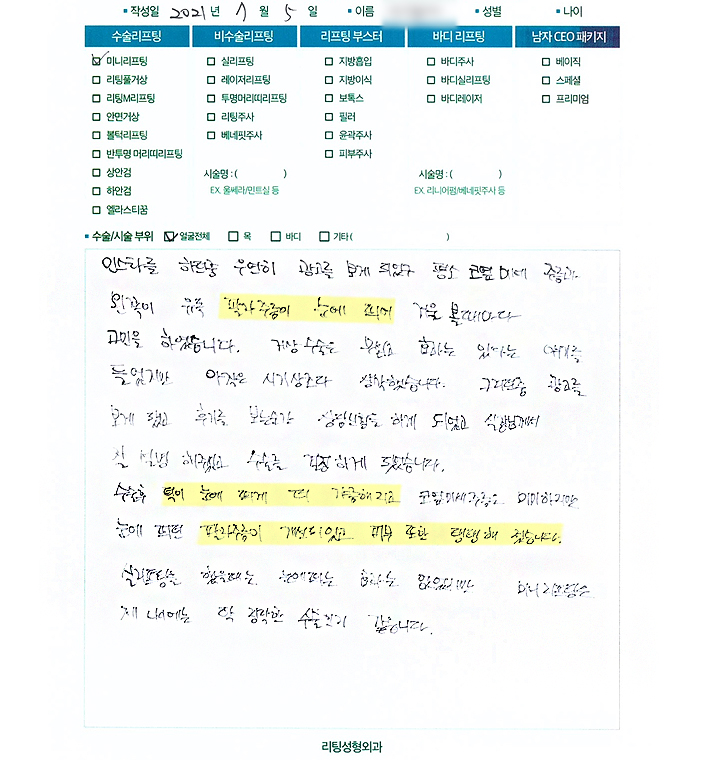 작성일 2021년 7월 5일 이름 성별 나이
수술리프팅 비수술리프팅 리프팅 부스터 바디 리프팅 남자 CEO 패키지
미니리프팅 실리프팅 지방흡입 바디주사 베이직
리팅풀거상 레이저리프팅 지방이식 바디실리프팅 스페셜
리팅M리프팅 투명머리띠리프팅 보톡스 바디레이저 프리미엄
안면거상 리팅주사 필러
볼턱리프팅 베네핏주사 윤곽주사
반투명 머리띠리프팅 피부주사
상안검 시술명 : ( ) 시술명 : ( )
하안검 EX. 울쎄라/민트실 등 EX. 리니어펌/베네핏주사 등
엘라스티꿈
수술/시술 부위 얼굴전체 목 바디 기타 ( )
인스타를 하던중 우연히 광고를 보게 되었구 평소 코옆 미세 주름과
유독 팔자주름이 눈에 띄어 거울 볼때마다
고민을 하였습니다. 거상 수술은 효과는 있다는 얘기를
들었지만 아직은 시기상조다 생각했습니다. 그러던중 광고를
보게 됐고 후기를 보는순간 상담신청을 하게 되었고 실장님께서
잘 설명 해주셨고 수술을 결정하게 되었습니다.
수술후 턱이 눈에 띄게 더 갸름해지고 코옆미세주름은 미미하지만
눈에 띄던 팔자주름이 개선되었고 피부 또한 탱탱해 졌습니다.
실리프팅을 했을때는 눈에띄는 효과는 없었지만 미니리프팅은
제 나이에는 딱 적당한 수술인거 같습니다.
리팅성형외과